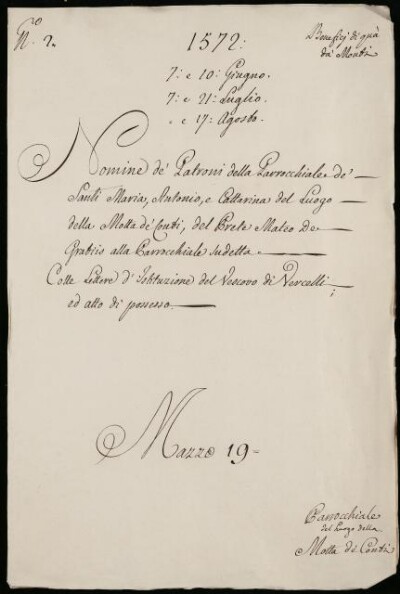 N.º 2.
Benefizj di quà
da' Monti
1572:
7: e 10: Giugno.
7: e 21: Luglio.
e 17: Agosto.
Nomine de' Patroni della Parrocchiale de'
Santi Maria, Antonio, e Catterina del Luogo
della Motta de' Conti, del Prete Mateo De
Grabiis alla Parrocchiale sudetta.
Colle Lettere d'Istituzione del Vescovo di Vercelli;
ed atto di possesso.
Mazzo 19=
Parrocchiale
del Luogo della
Motta di Conti